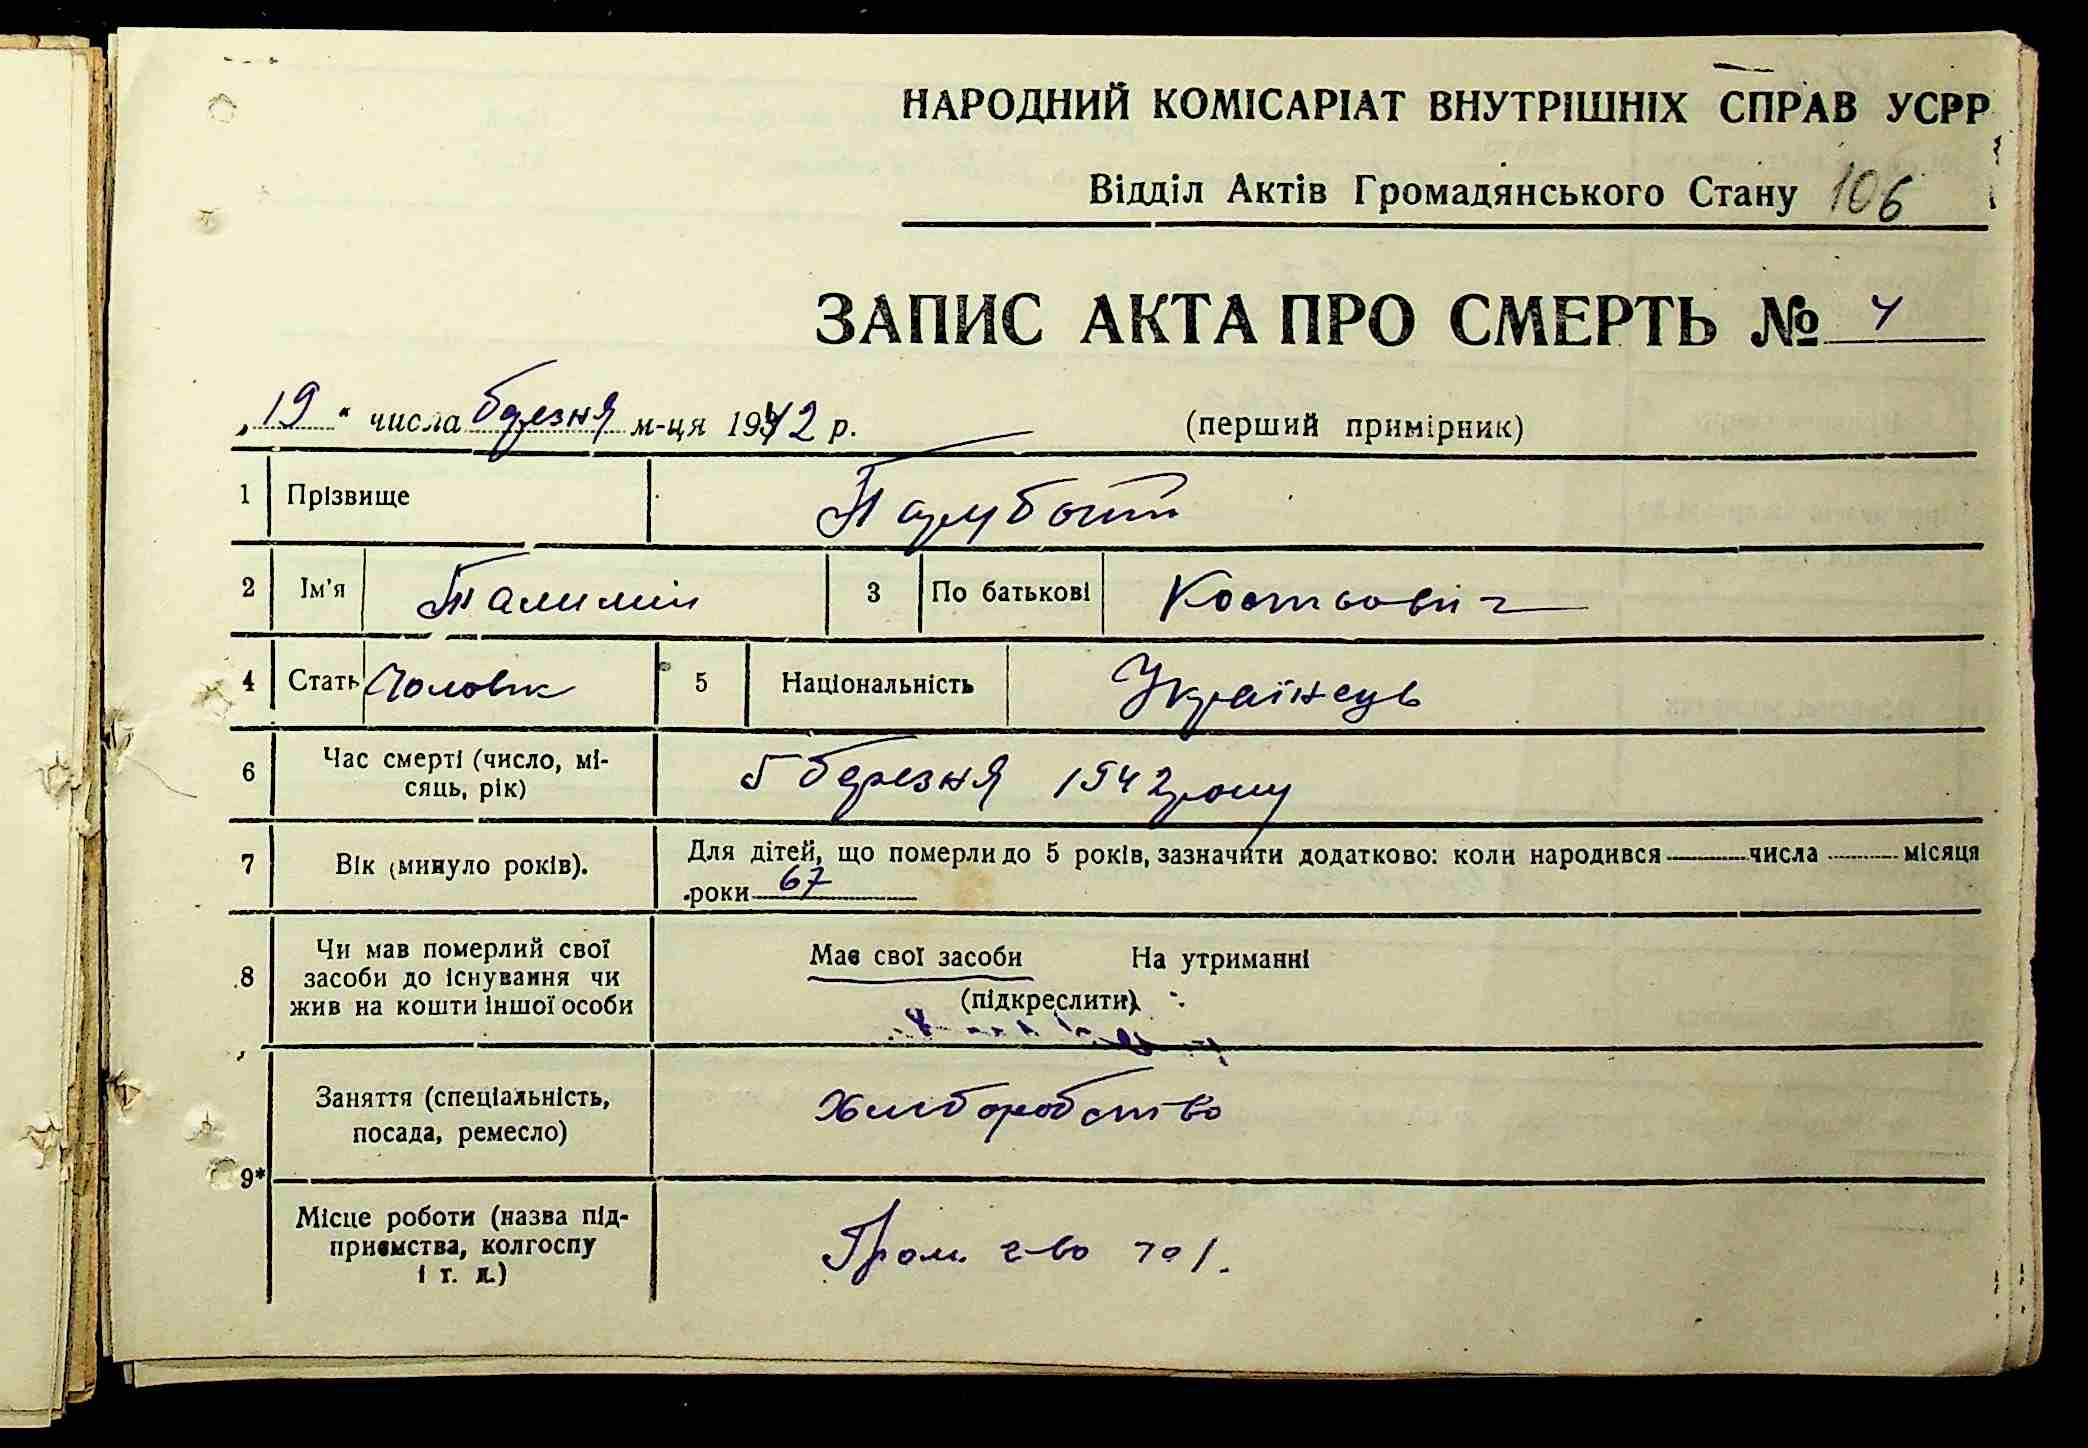 НАРОДНИЙ КОМІСАРІАТ ВНУТРІШНІХ СПРАВ УСРР
Відділ Актів Громадянського Стану 106
ЗАПИС АКТА ПРО СМЕРТЬ № 4
„19“ числа березня м-ця 1942 р. (перший примірник)
1 Прізвище
2 Ім'я 3 По батькові Костьович
4 Стать Чоловік 5 Національність Українець
6 Час смерті (число, мі-
сяць, рік) 5 березня 1942 року
7 Вік (минуло років). Для дітей, що померли до 5 років, зазначити додатково: коли народився числа місяця
роки 67
8 Чи мав померлий свої
засоби до існування чи
жив на кошти іншої особи
Має свої засоби На утриманні
(підкреслити)
9* Заняття (спеціальність,
посада, ремесло) Хліборобство
Місце роботи (назва під-
приємства, колгоспу
і т. д.) Гром. г-во №1.